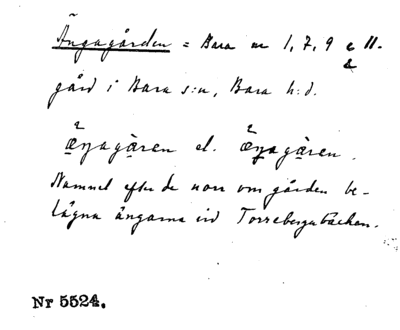 Ängagården = Bara nr 1, 7, 9 & 11.
gård i Bara s:n, Bara h:d.
ǟŋagàren el. ǟŋagàren.
Namnet efter de norr om gården be-
lägna ängarna vid Torrebergabäcken.
Nr 5524.